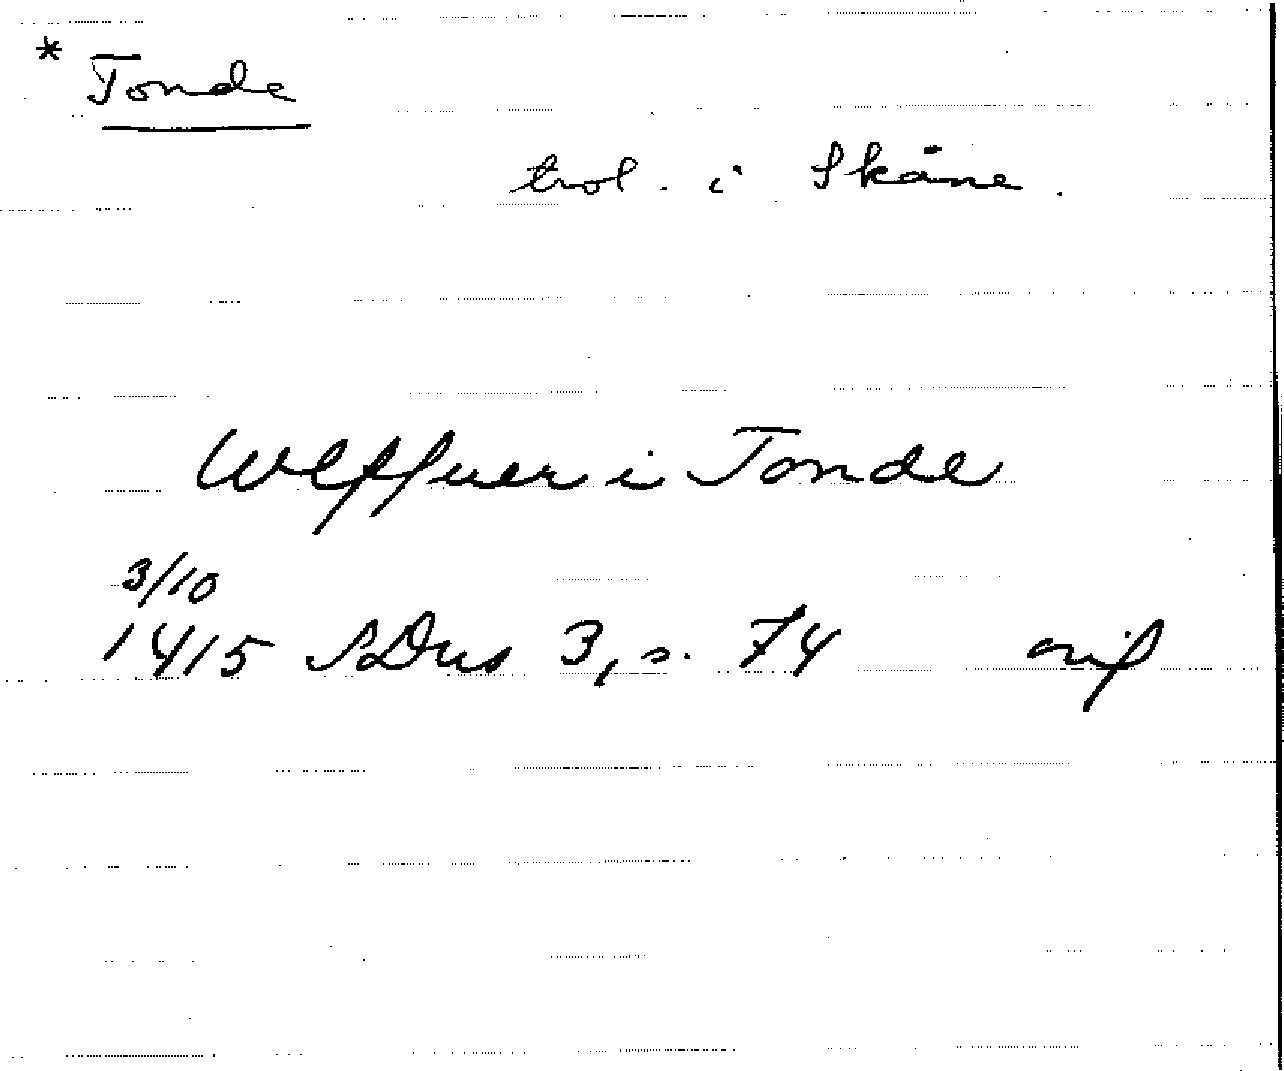 * Tonde
trol. i Skåne.
Weffuer i Tonde
3/10
1415 SDns 3, s. 74 orif